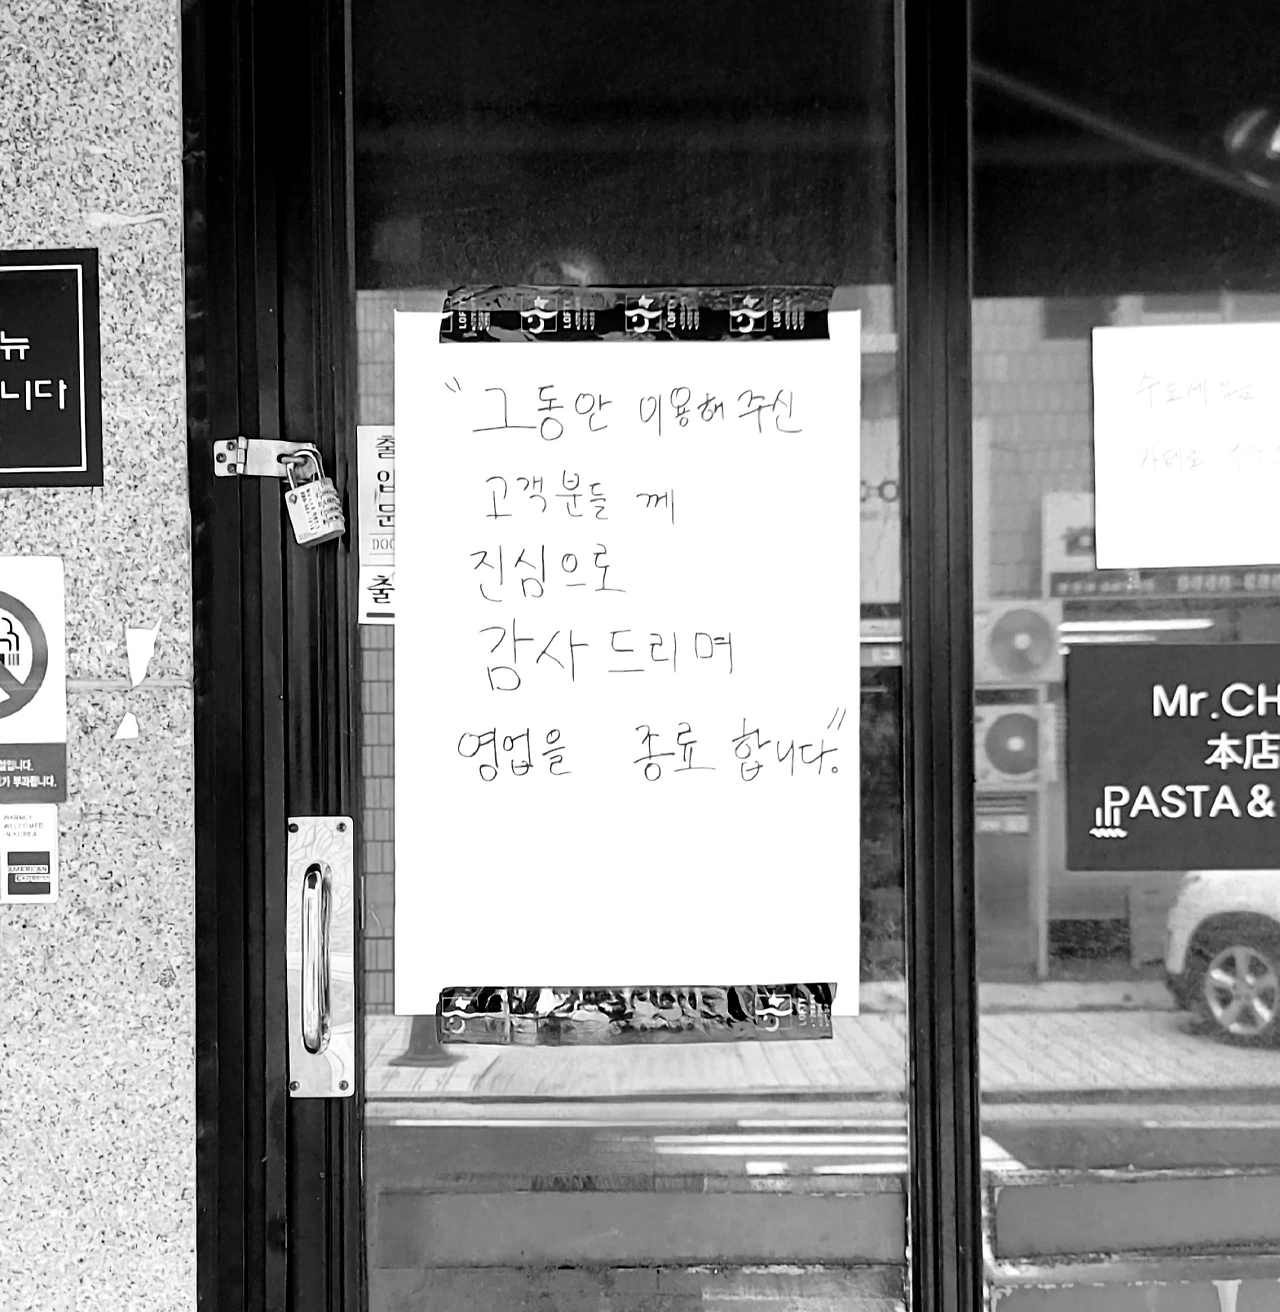 뉴
니다
출
입
문
DOO
출
LOFTY
LOFTY
LOFTY
LOFTY
"그동안 이용해 주신
고객분들 께
진심으로
감사 드리며
영업을 종료 합니다."
LOFTY
수도세
카페로
Mr.CH
本店
PASTA &
가 부과됩니다.
WARMLY
WELCOMED
IN KOREA
AMERICAN
EXPRESS